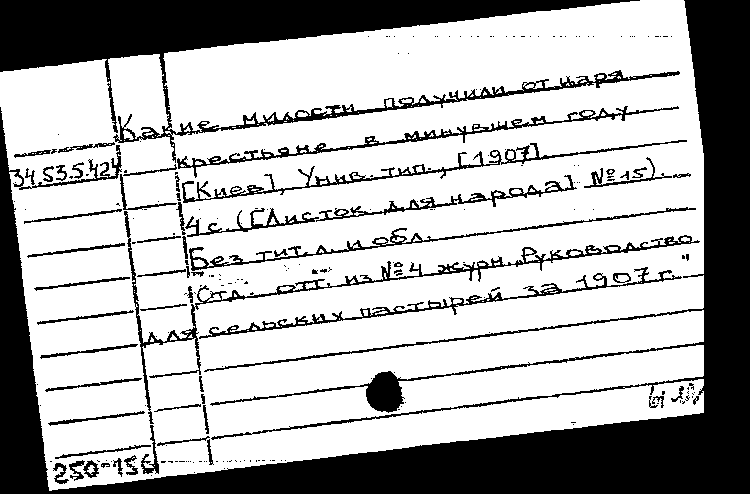 Какие милости получили от царя
34.53.5.424. крестьяне в минувшем году.
[Киев], Унив. тип., [1907].
4 с. ([Листок для народа] № 15).
Без тит. л. и обл.
Отд. отт. из № 4 журн. „Руководство
для сельских пастырей за 1907 г."
250-156